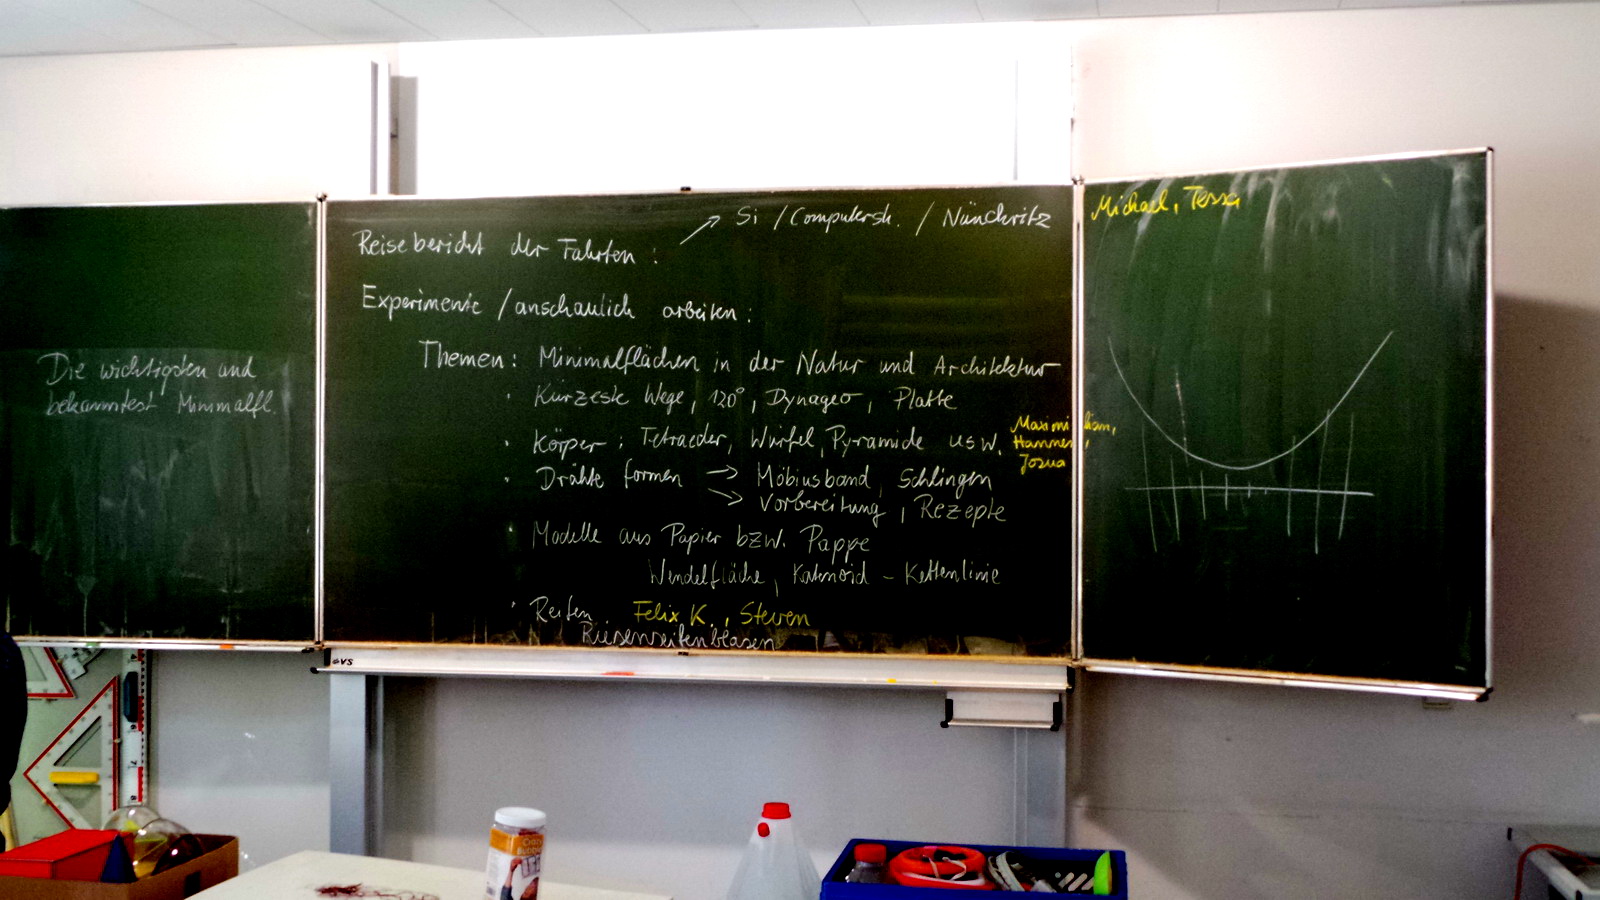 Die wichtigsten und
bekanntest Minimalfl.
Reisebericht der Fahrten :
Si / Computersh. / Nünchritz
Experimente / anschaulich arbeiten :
Themen : Minimalflächen in der Natur und Architektur
· Kürzeste Wege, 120°, Dynageo, Platte
· Körper : Tetraeder, Würfel, Pyramide usw.
Maximilian,
Hannes,
Josua
· Drähte formen → Möbiusband, Schlingen
→ Vorbereitung, Rezepte
· Modelle aus Papier bzw. Pappe
Wendelfläche, Katenoid - Kettenlinie
· Reifen Felix K., Steven
Riesenseifenblasen
Michael, Tessa